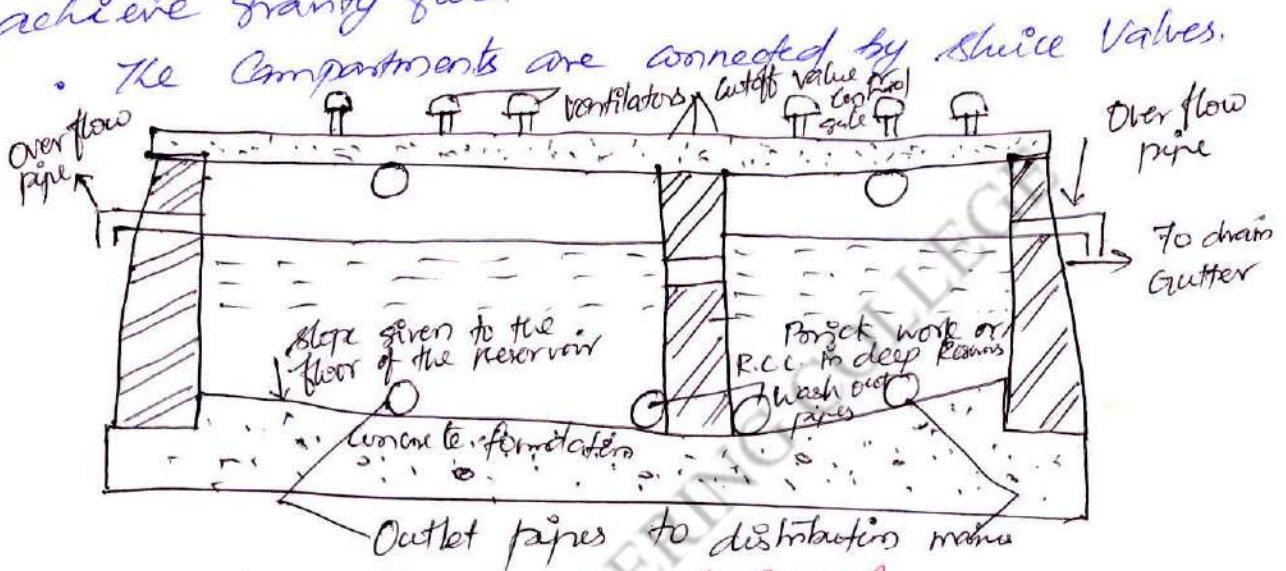 achieve gravity
• The Compartments are connected by Sluice Valves.
Over flow
pipe
ventilators
Cutoff value or
Control
gate
Over flow
pipe
To drain
Gutter
slope given to the
floor of the reservoir
Brick work or
R.C.C. in deep
wash out
pipes
Concrete foundation
Outlet pipes to distribution mains
ERING COLLEGE